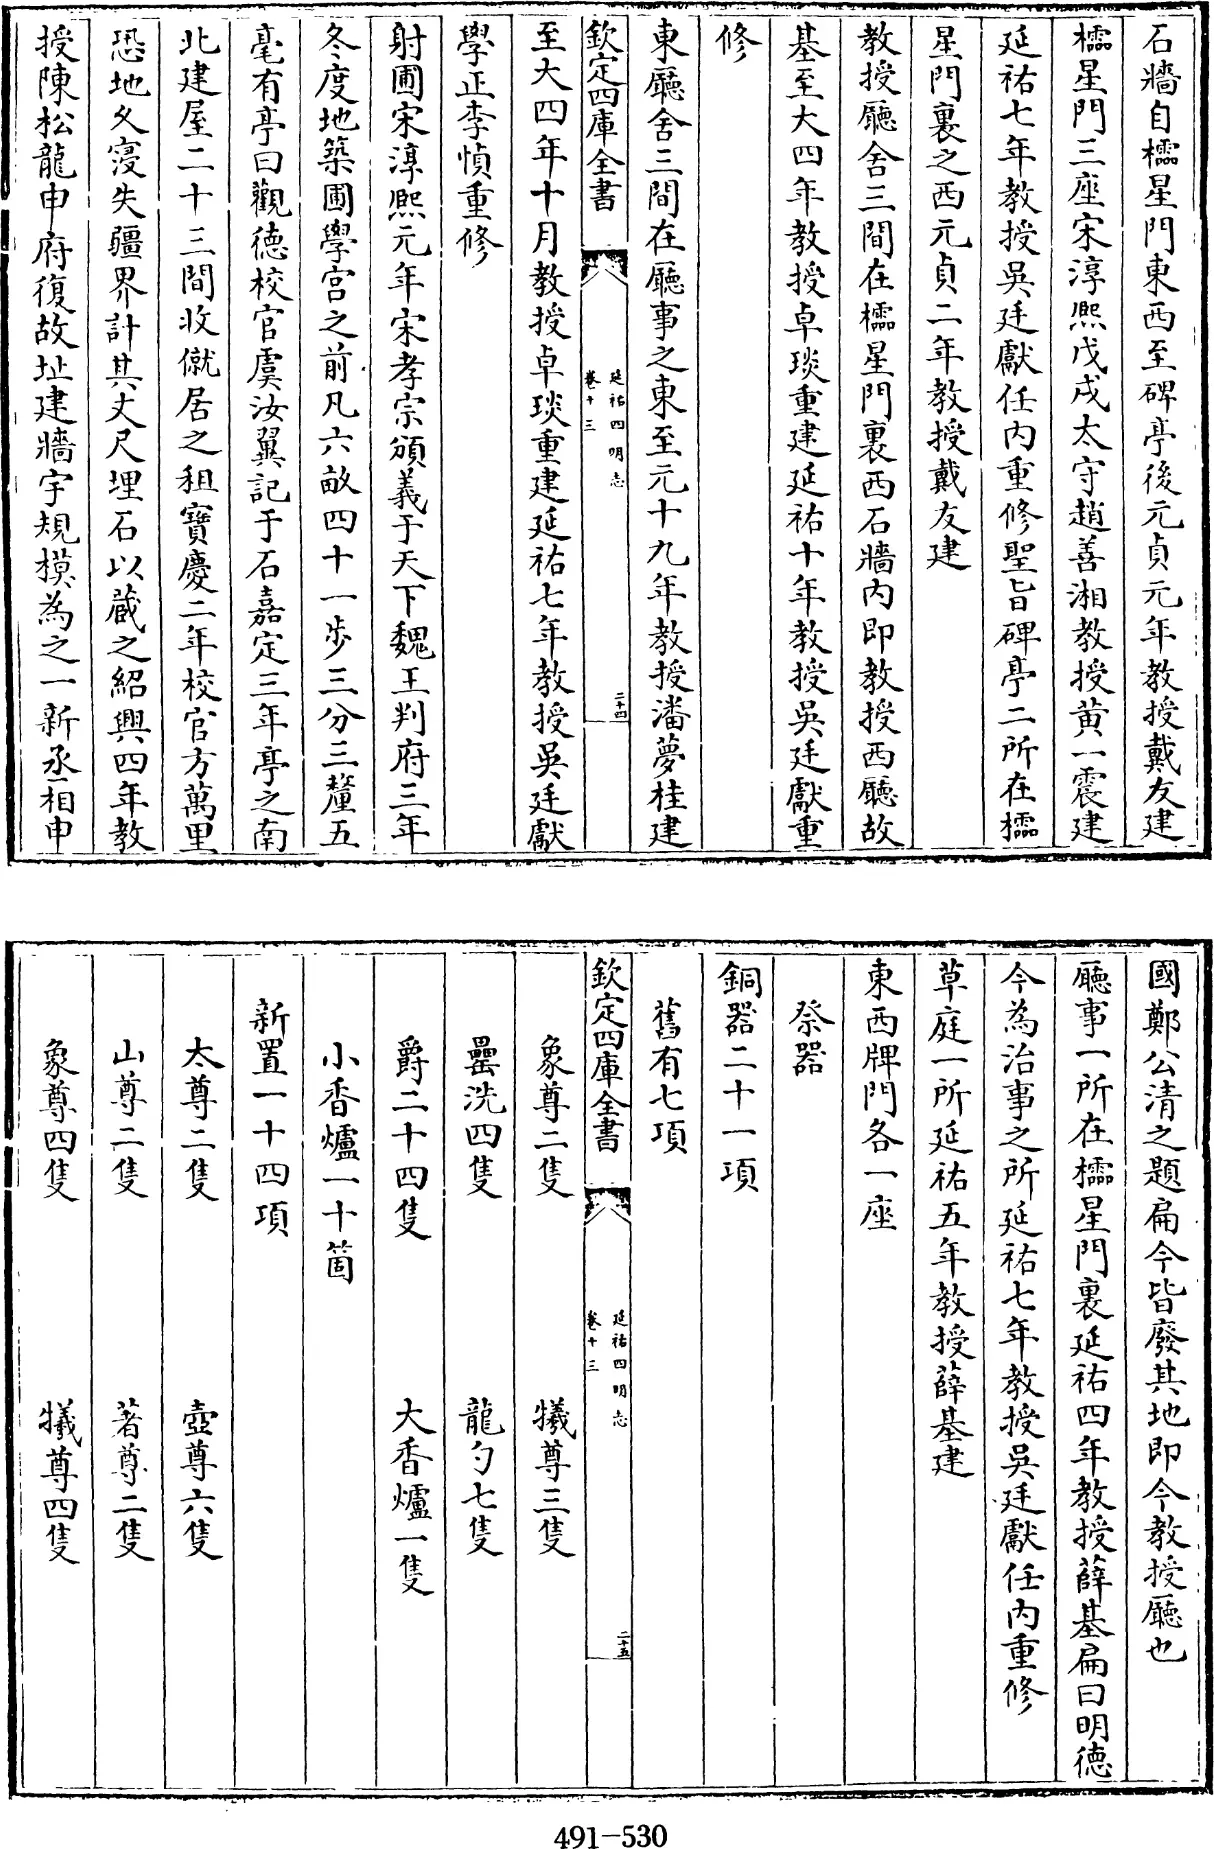 石牆自櫺星門東西至碑亭後元貞元年教授戴友建
櫺星門三座宋淳熙戊戌太守趙善湘教授黄一震建
延祐七年教授吳廷獻任内重修聖旨碑亭二所在櫺
星門裏之西元貞二年教授戴友建
教授廳舍三間在櫺星門裏西石牆内即教授西廳故
基至大四年教授卓琰重建延祐十年教授吳廷獻重
修
東廳舍三間在廳事之東至元十九年教授潘夢桂建
欽定四庫全書
延祐四明志
卷十三
二十四
至大四年十月教授卓琰重建延祐七年教授吳廷獻
學正李慎重修
射圃宋淳熙元年宋孝宗頒義于天下魏王判府三年
冬度地築圃學宫之前凡六畝四十一步三分三釐五
毫有亭曰觀德校官虞汝翼記于石嘉定三年亭之南
北建屋二十三間收僦居之租寶慶二年校官方萬里
恐地久寖失疆界計其丈尺埋石以蔵之紹興四年教
授陳松龍申府復故址建牆宇規模為之一新丞相申
國鄭公清之題扁今皆廢其地即今教授廳也
廳事一所在櫺星門裏延祐四年教授薛基扁曰明德
今為治事之所延祐七年教授吳廷獻任内重修
草庭一所延祐五年教授薛基建
東西牌門各一座
祭器
銅器二十一項
舊有七項
欽定四庫全書
延祐四明志
卷十三
二十五
象尊二隻 犧尊三隻
罍洗四隻 龍勺七隻
爵二十四隻 大香爐一隻
小香爐一十箇
新置一十四項
太尊二隻 壺尊六隻
山尊二隻 著尊二隻
象尊四隻 犧尊四隻
491-530